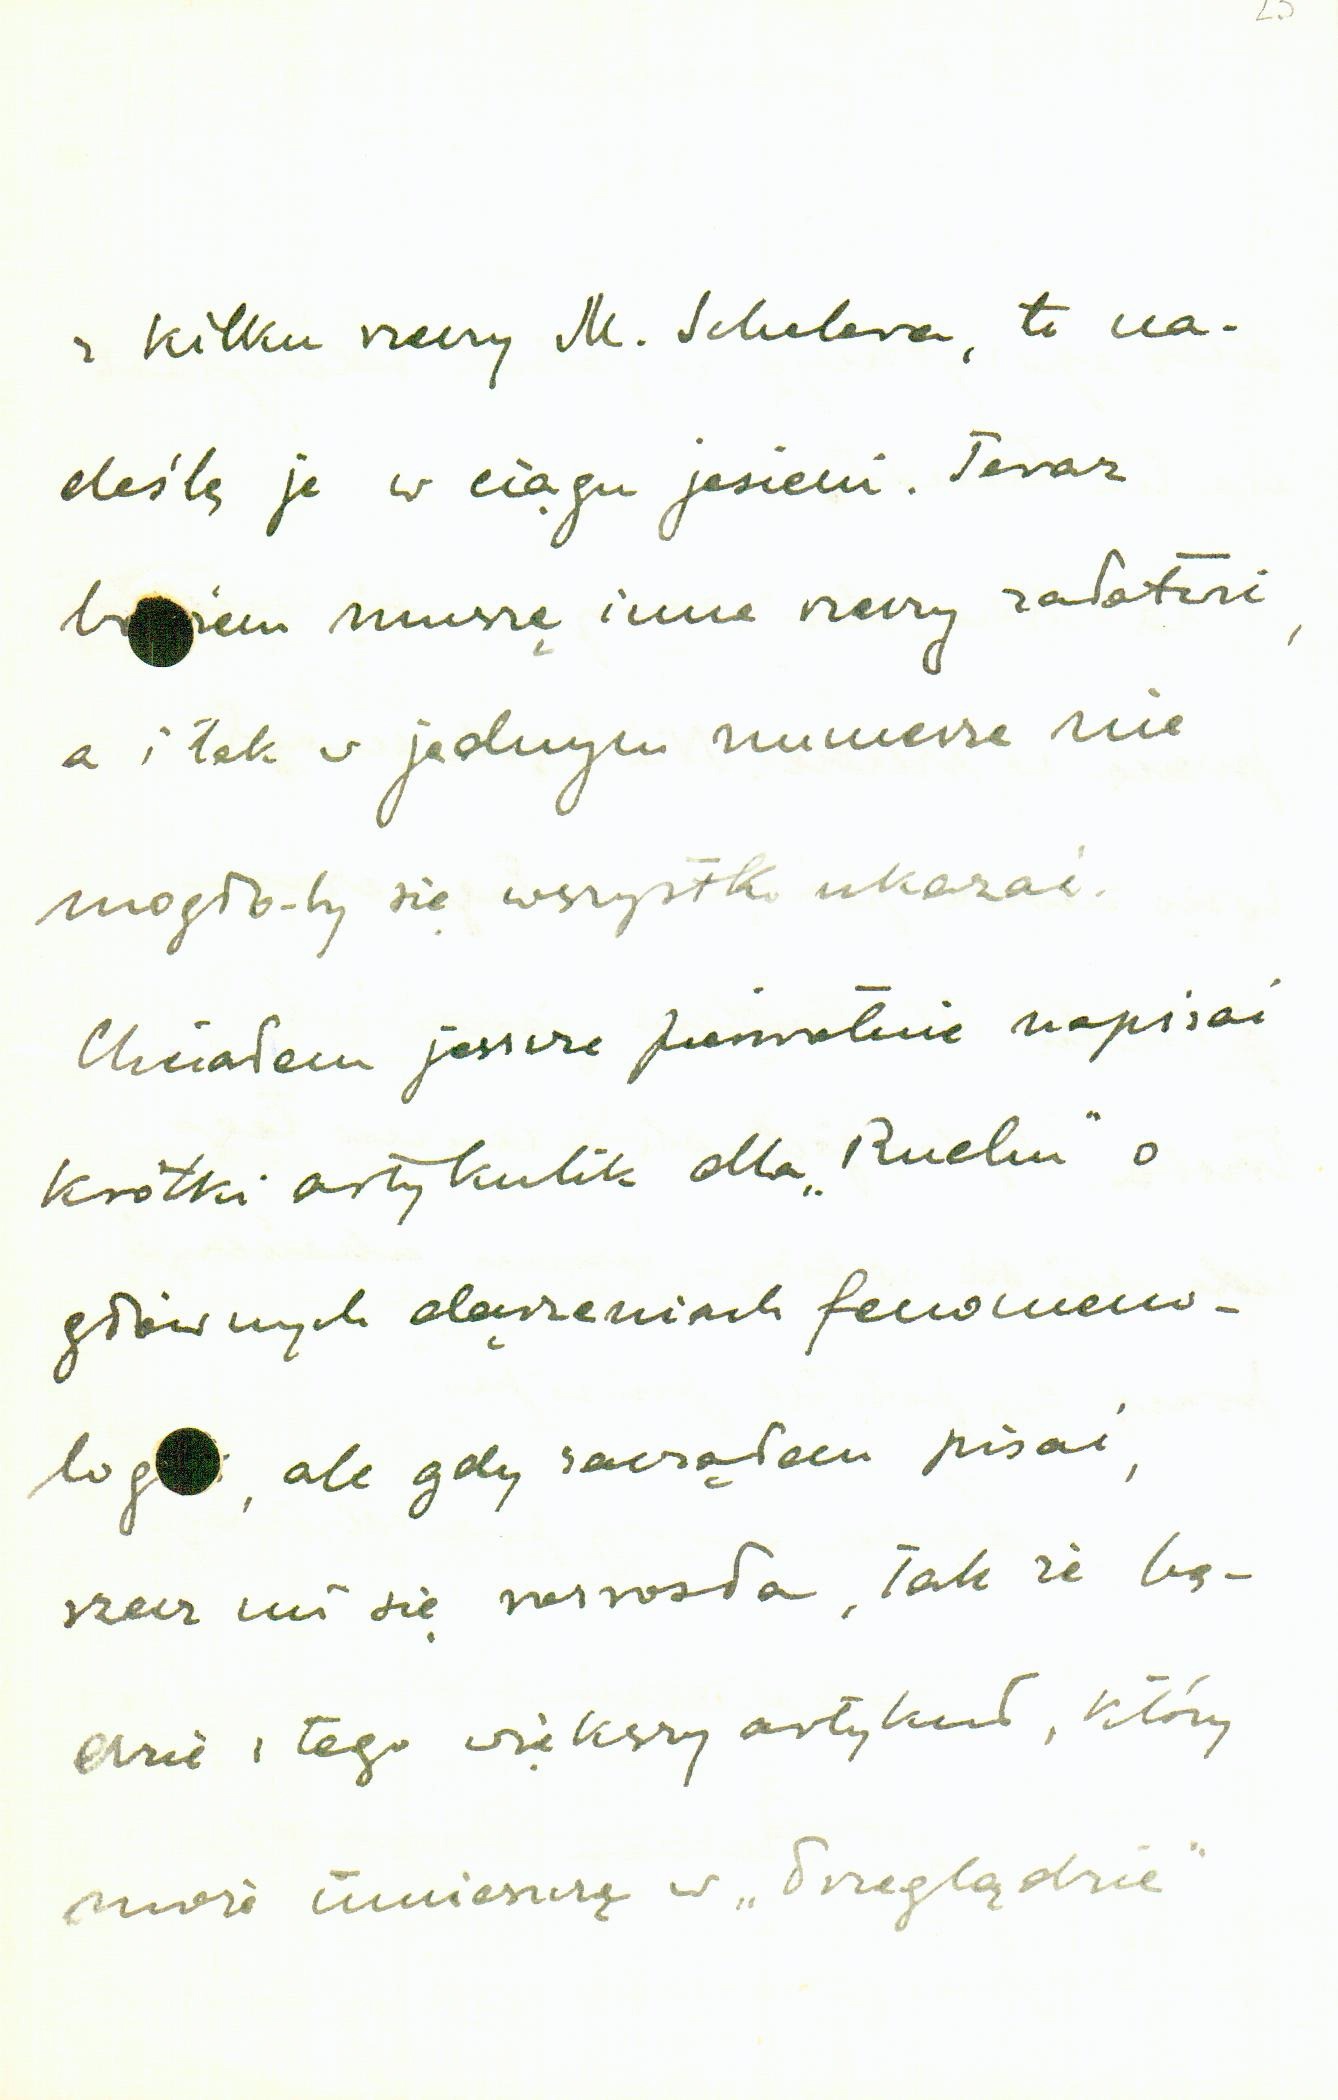 25
z kilku rzeczy M. Schelera, to na-
deślę je w ciągu jesieni. Teraz
bowiem muszę inne rzeczy załatwić,
a i tak w jednym numerze nie
mogło-by się wszystko ukazać.
Chciałem jeszcze pierwotnie napisać
krótki artykulik dla „Ruchu" o
głównych dążeniach fenomeno-
logii, ale gdy zacząłem pisać,
rzecz mi się rozrosła, tak że bę-
dzie z tego większy artykuł, który
może umieszczę w „Przeglądzie"